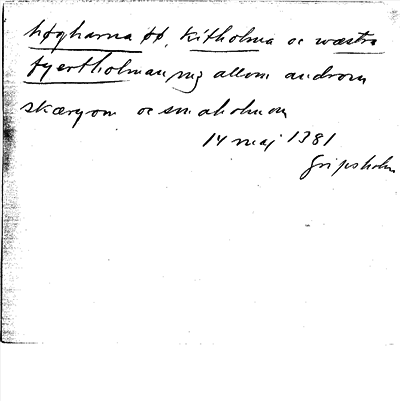 høgharna øø, Kitholma oc wæstra
fyertholman mz allom androm
skæryom oc smaholmom
14 maj 1381
Gripsholm